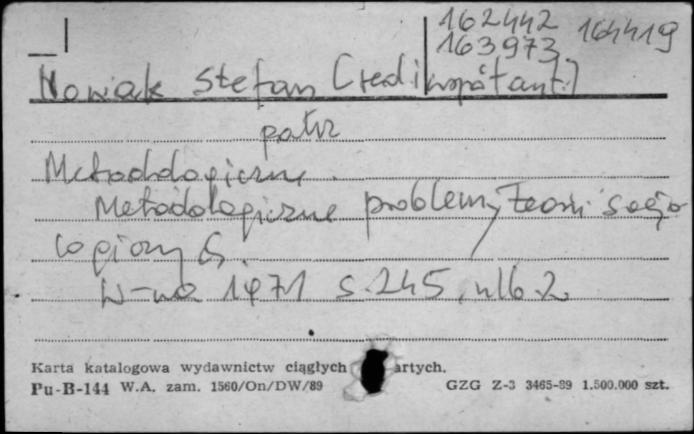 162442
163973 164419
Nowak Stefan [red i współaut.]
patrz
Metodologiczne.
Metodologiczne problemy teorii socjo
logicznych.
W-wa 1971 s. 245, nlb 2
Karta katalogowa wydawnictw ciągłych artych.
Pu-B-144 W.A. zam. 1560/On/DW/89 GZG Z-3 3465-89 1.500.000 szt.